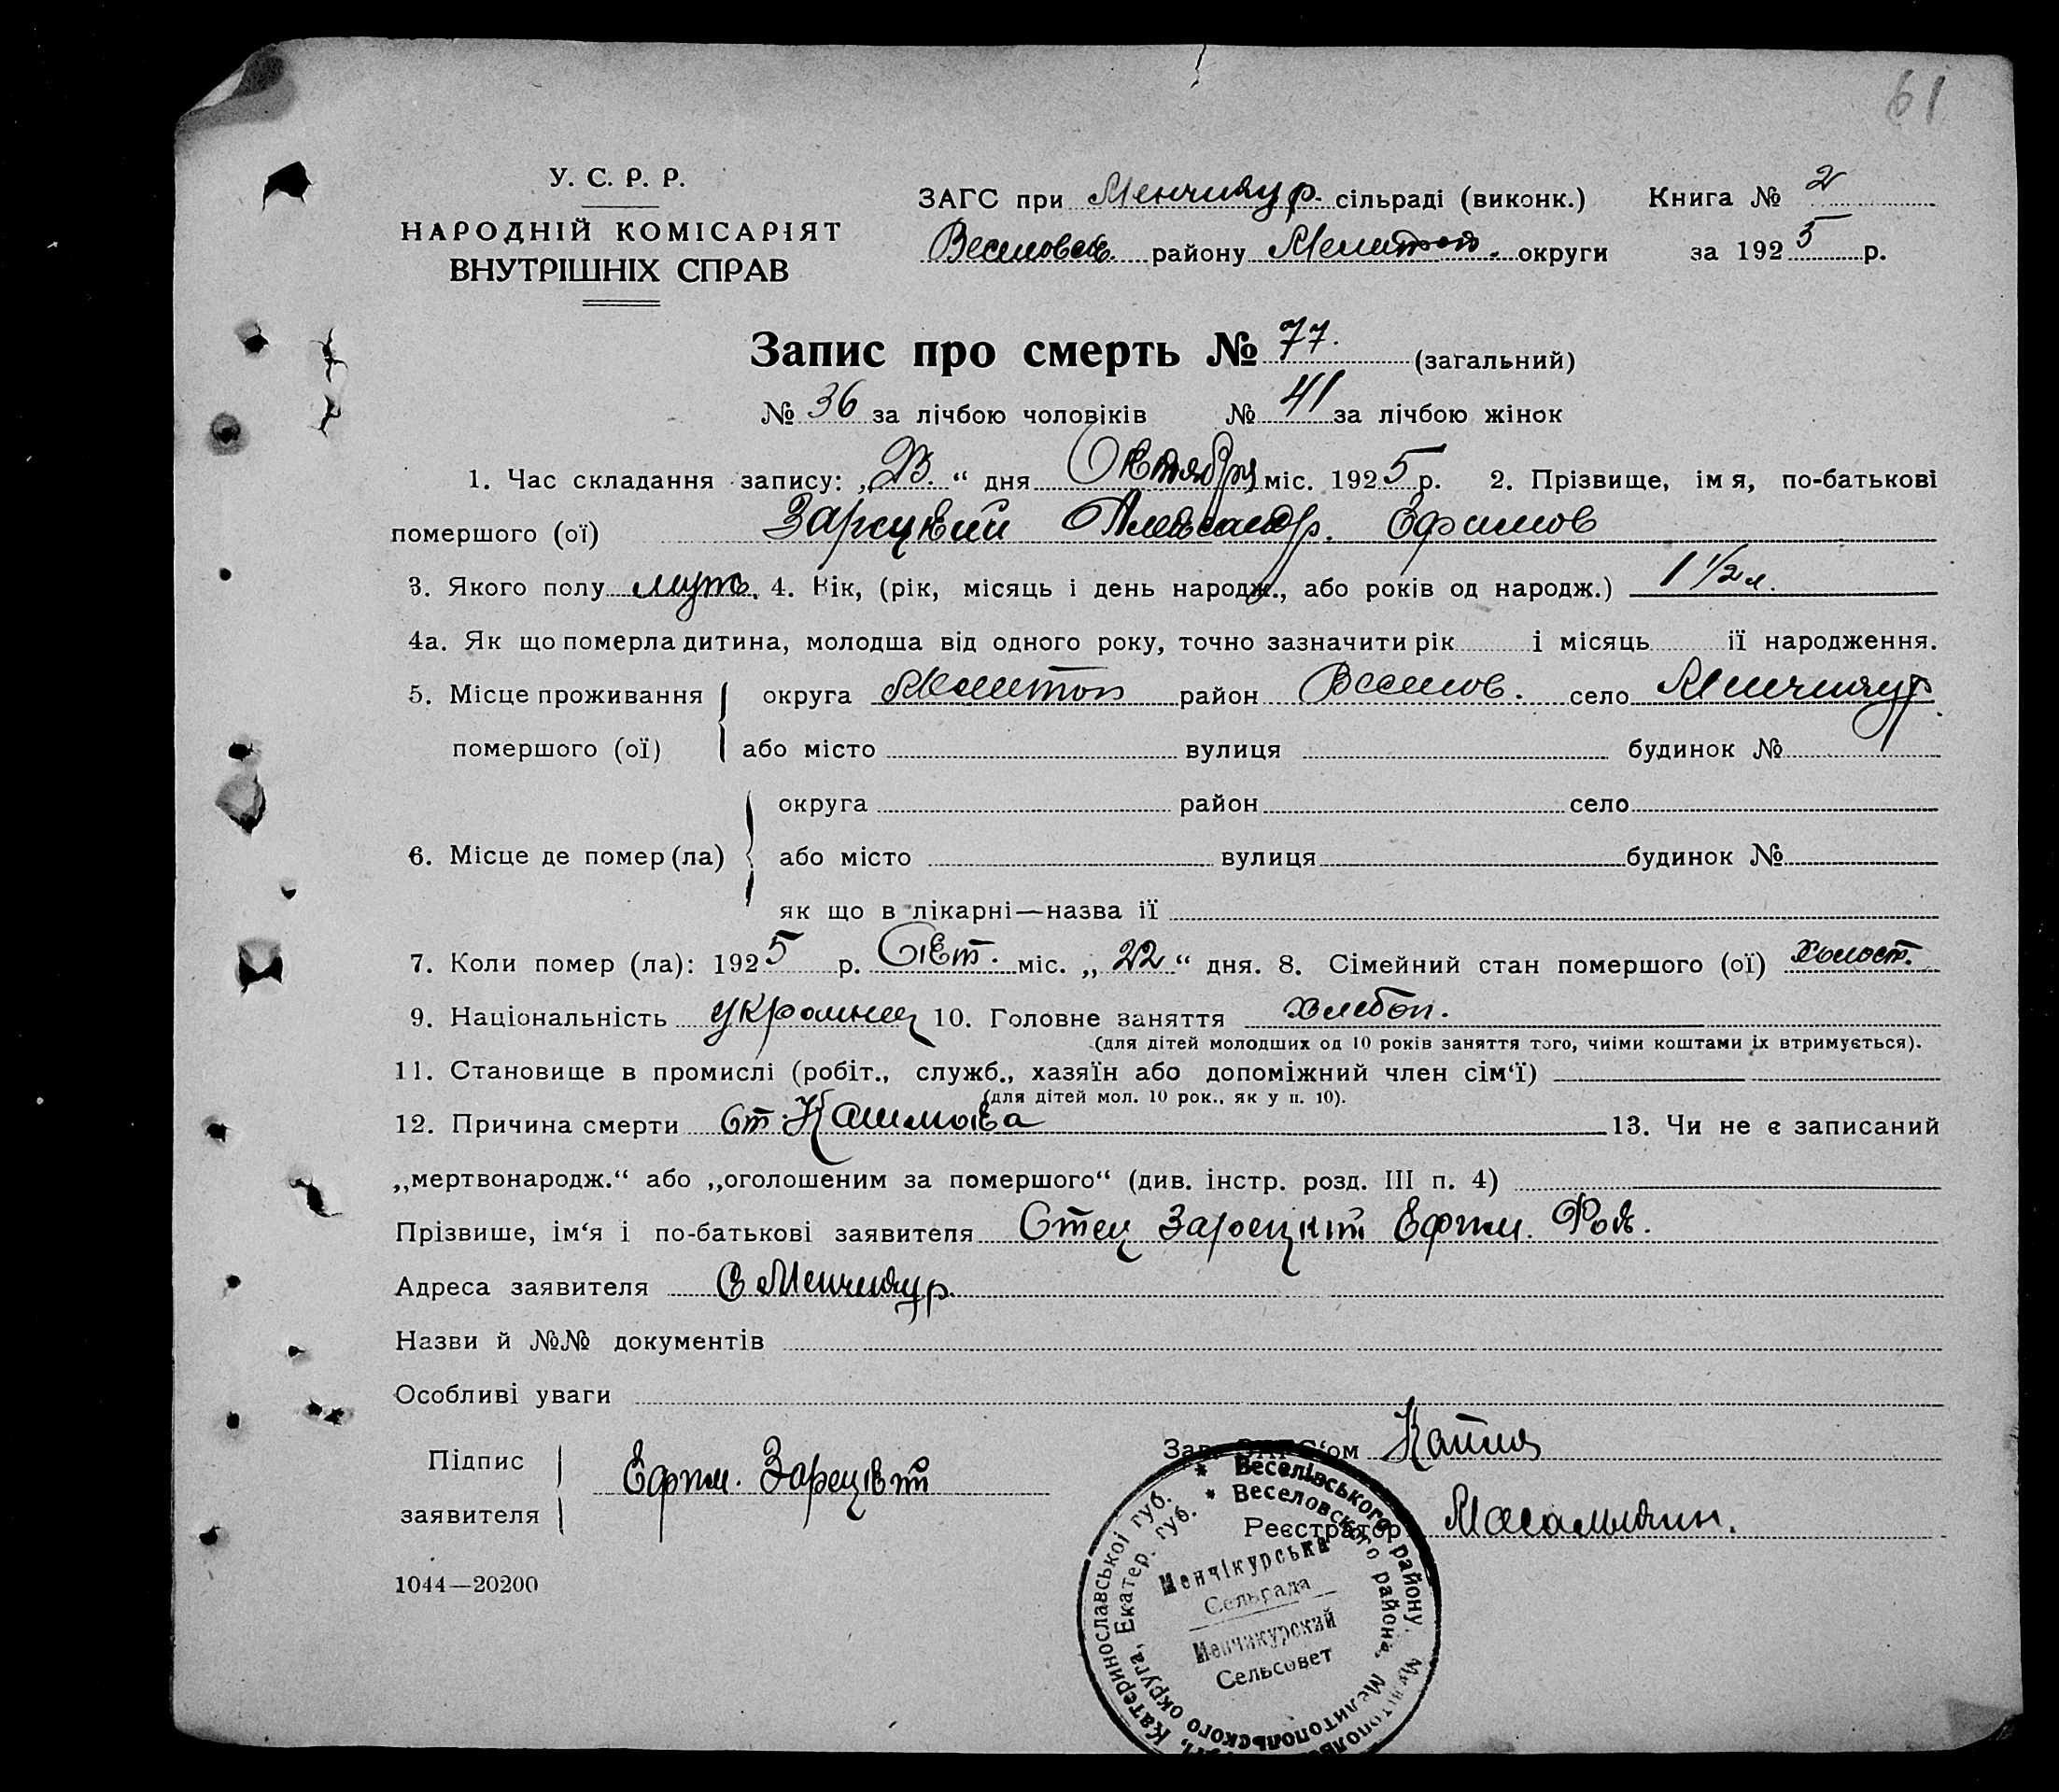 61
У. С. Р. Р.
НАРОДНІЙ КОМІСАРІЯТ
ВНУТРІШНІХ СПРАВ
ЗАГС при Менчикур. сільраді (виконк.) Книга № 2
Веселовск. району Мелитоп. округи за 1925 р.
Запис про смерть № 77. (загальний)
№ 36 за лічбою чоловіків № 41 за лічбою жінок
1. Час складання запису: „23.“ дня Октября міс. 1925 р. 2. Прізвище, ім я, по-батькові
помершого (ої) Зарецкий Александр. Ефимов
3. Якого полу муж. 4. Вік, (рік, місяць і день народж., або років од народж.) 1 ½ л.
4а. Як що померла дитина, молодша від одного року, точно зазначити рік і місяць її народження.
5. Місце проживання округа Мелитоп район Веселов. село Менчикур
помершого (ої) або місто вулиця будинок №
округа район село
6. Місце де помер (ла) або місто вулиця будинок №
як що в лікарні—назва її
7. Коли помер (ла): 1925 р. Окт. міс. „22“ дня. 8. Сімейний стан помершого (ої) холост.
9. Національність украинец 10. Головне заняття хлебоп.
(для дітей молодших од 10 років заняття того, чиїми коштами їх втримується).
11. Становище в промислі (робіт., служб., хазяїн або допоміжний член сім‘ї)
(для дітей мол. 10 рок., як у п. 10).
12. Причина смерти От Кашлюка 13. Чи не є записаний
„мертвонародж.“ або „оголошеним за помершого“ (див. інстр. розд. III п. 4)
Прізвище, ім‘я і по-батькові заявителя Отец Зарецкий Ефим.
Адреса заявителя С Менчикур.
Назви й №№ документів
Особливі уваги
Підпис
заявителя Ефим. Зарецкий
Зав. ЗАГС‘ом
Реєстратор
1044—20200
Веселівського району, Катеринославської губ.
Веселовского района, Мелитопольского округа, Екатер. губ.
Менчікурська
Сельрада
Менчикурский
Сельсовет